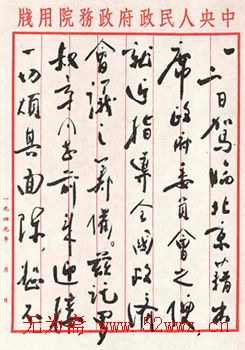 中央人民政府政務院用牋
一二日駕臨北京藉出
席政府委員會之便,
就近指導全國救濟
會議之籌備。茲託羅
叔章同志前來迎接
一切煩其面陳,恕不
一九四九年 月 日
www.52wwx.cn